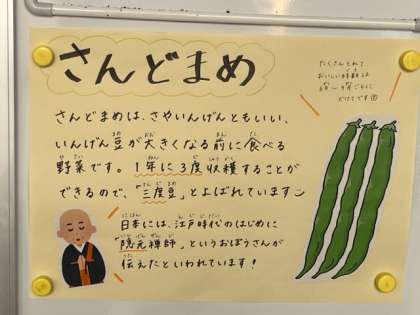 さんどまめ
たくさんとれて
おいしい時期は
6月〜9月ごろに
かけてです
さんどまめは、さやいんげんともいい、
いんげん豆が大きくなる前に食べる
野菜です。1年に3度収穫することが
できるので、「三度豆」とよばれています
日本には、江戸時代のはじめに
「隠元禅師」というおぼうさんが
伝えたといわれています!